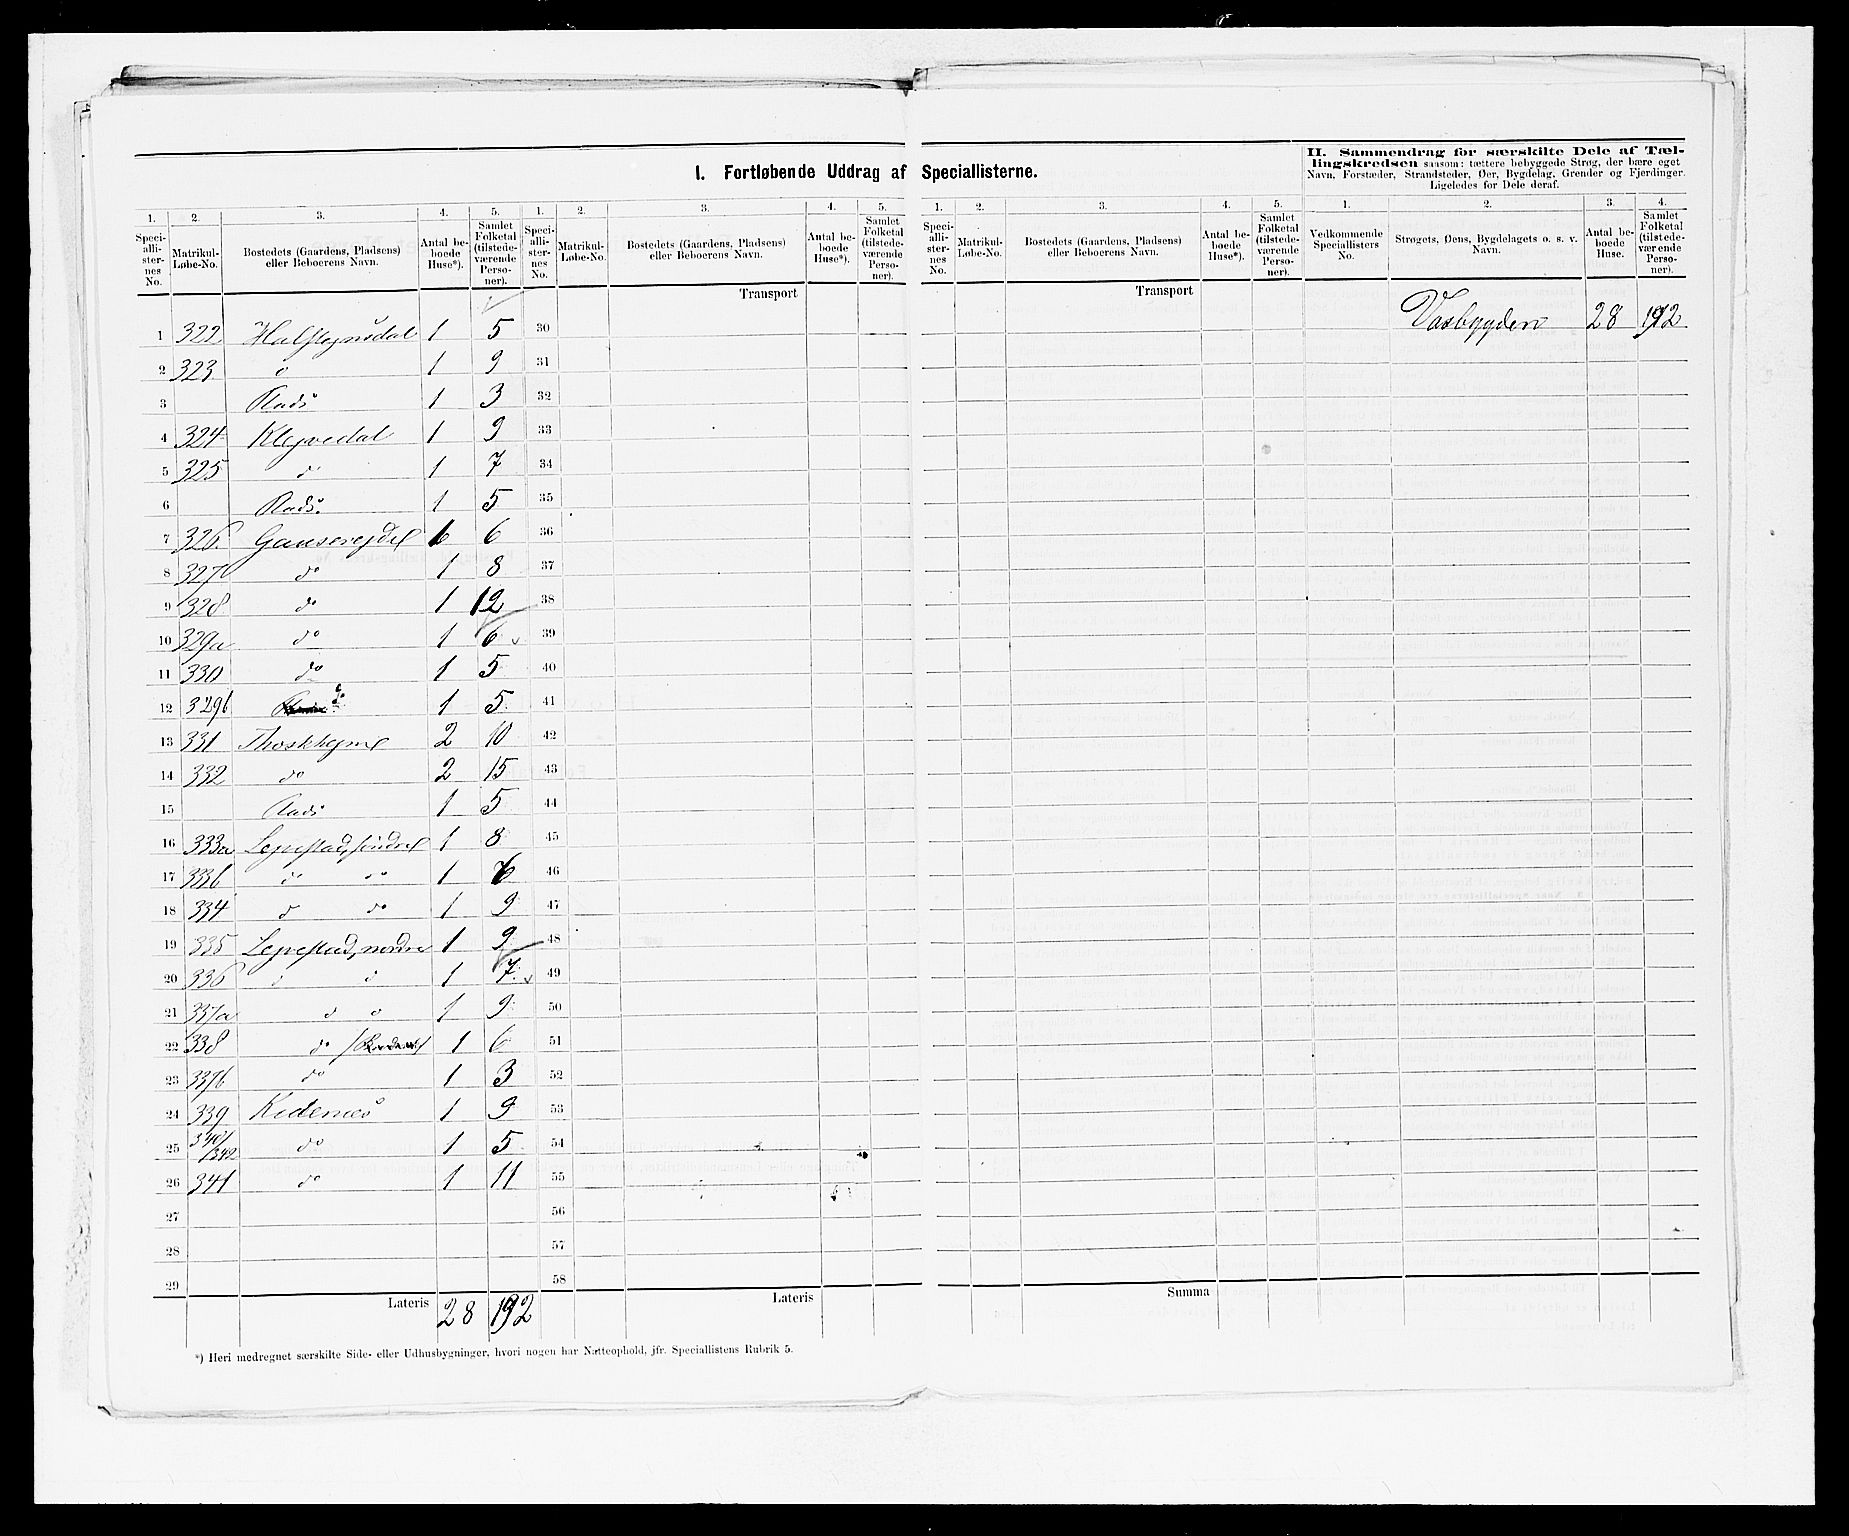 I. Fortløbende Uddrag af Speciallisterne.
II. Sammendrag for særskilte Dele af Tæl-
lingskredsen saasom: tættere bebyggede Strøg, der bære eget
Navn, Forstæder, Strandsteder, Øer, Bygdelag, Grender og Fjerdinger.
Ligeledes for Dele deraf.
1. 2. 3. 4. 5. 1. 2. 3. 4. 5. 1. 2. 3. 4. 5. 1. 2. 3. 4.
Speci-alli-ster-nes No. Matrikul-Løbe-No. Bostedets (Gaardens, Pladsens) eller Beboerens Navn. Antal be-boede Huse*). Samlet Folketal (tilstede-værende Perso-ner).
Speci-alli-ster-nes No. Matrikul-Løbe-No. Bostedets (Gaardens, Pladsens) eller Beboerens Navn. Antal be-boede Huse*). Samlet Folketal (tilstede-værende Perso-ner).
Speci-alli-ster-nes No. Matrikul-Løbe-No. Bostedets (Gaardens, Pladsens) eller Beboerens Navn. Antal be-boede Huse*). Samlet Folketal (tilstede-værende Perso-ner).
Vedkommende Speciallisters No. Strøgets, Øens, Bygdelagets o. s. v. Navn. Antal be-boede Huse. Samlet Folketal (tilstede-værende Perso-ner).
Transport Transport
1 322 Halstegnsdal 1 5 30 Vasbygden 28 192
2 323 o 1 9 31
3 Rads 1 3 32
4 324 Klejvedal 1 9 33
5 325 do 1 7 34
6 Rads. 1 5 35
7 326. 6 6 36
8 327 do 1 8 37
9 328 do 1 12 38
10 329a do 1 6 39
11 330 do 1 5 40
12 329b do 1 5 41
13 331 2 10 42
14 332 do 2 15 43
15 Rads 1 5 44
16 333a Lejrestad, söndre 1 8 45
17 333b do do 1 6 46
18 334 d do 1 9 47
19 335 Lejrestad, nordre 1 9 48
20 336 d d 1 7 49
21 337a d o 1 9 50
22 338 do 1 6 51
23 337b do 1 3 52
24 339 Kidenæs 1 9 53
25 340/342 do 1 5 54
26 341 do 1 11 55
27 56
28 57
29 58
Lateris 28 192 Lateris Summa
*) Heri medregnet særskilte Side- eller Udhusbygninger, hvori nogen har Natteophold, jfr. Speciallistens Rubrik 5.